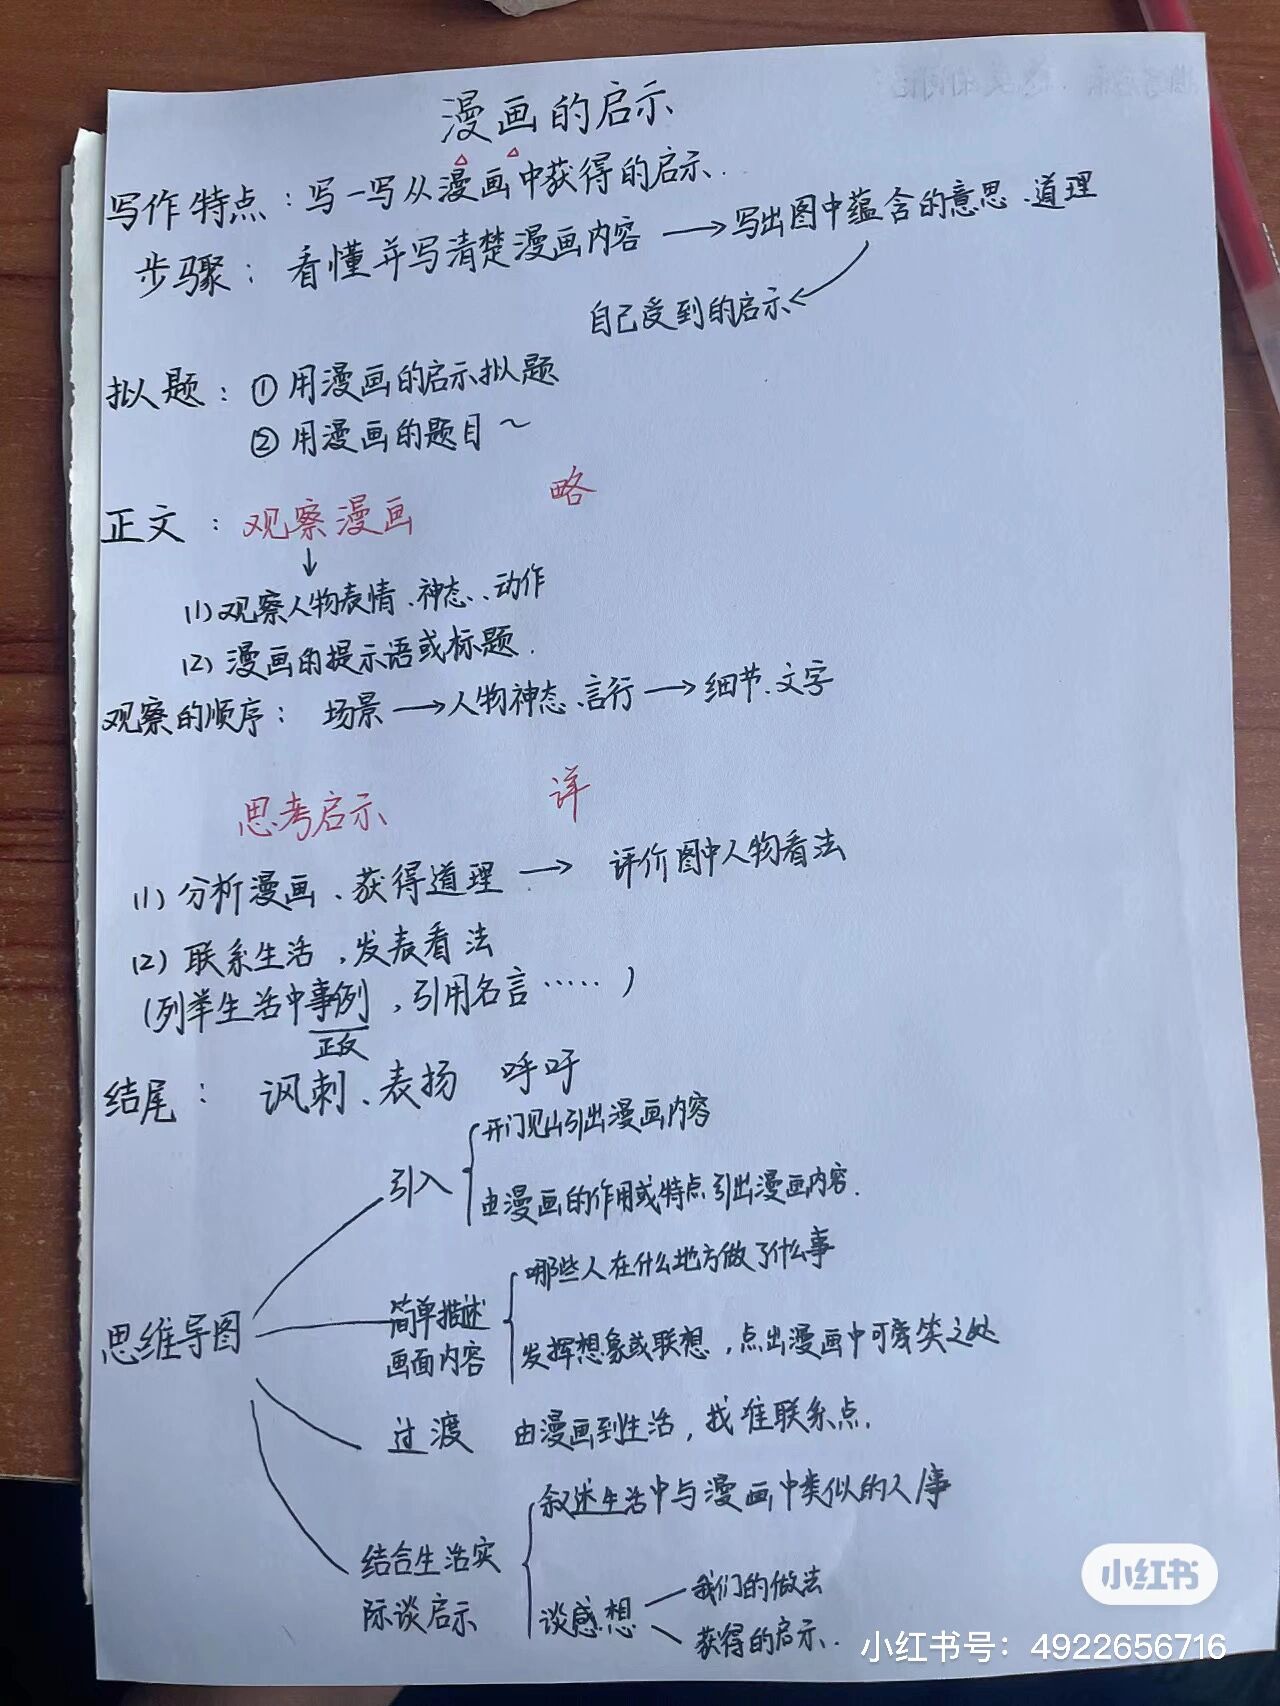 漫画的启示
写作特点：写一写从漫画中获得的启示.
步骤：看懂并写清楚漫画内容 → 写出图中蕴含的意思、道理
自己受到的启示
拟题：① 用漫画的启示拟题
② 用漫画的题目～
正文：观察漫画 略
(1) 观察人物表情、神态、动作
(2) 漫画的提示语或标题.
观察的顺序：场景 → 人物神态、言行 → 细节、文字
思考启示 详
(1) 分析漫画、获得道理 → 评价图中人物看法
(2) 联系生活，发表看法
(列举生活中事例，引用名言……)
正反
结尾：讽刺、表扬 呼吁
引入
开门见山引出漫画内容
由漫画的作用或特点引出漫画内容.
思维导图
简单描述
画面内容
哪些人在什么地方做了什么事
发挥想象或联想，点出漫画中可笑之处
过渡 由漫画到生活，找准联系点.
结合生活实
际谈启示
叙述生活中与漫画中类似的人/事
谈感想
我们的做法
获得的启示.
小红书
小红书号：4922656716